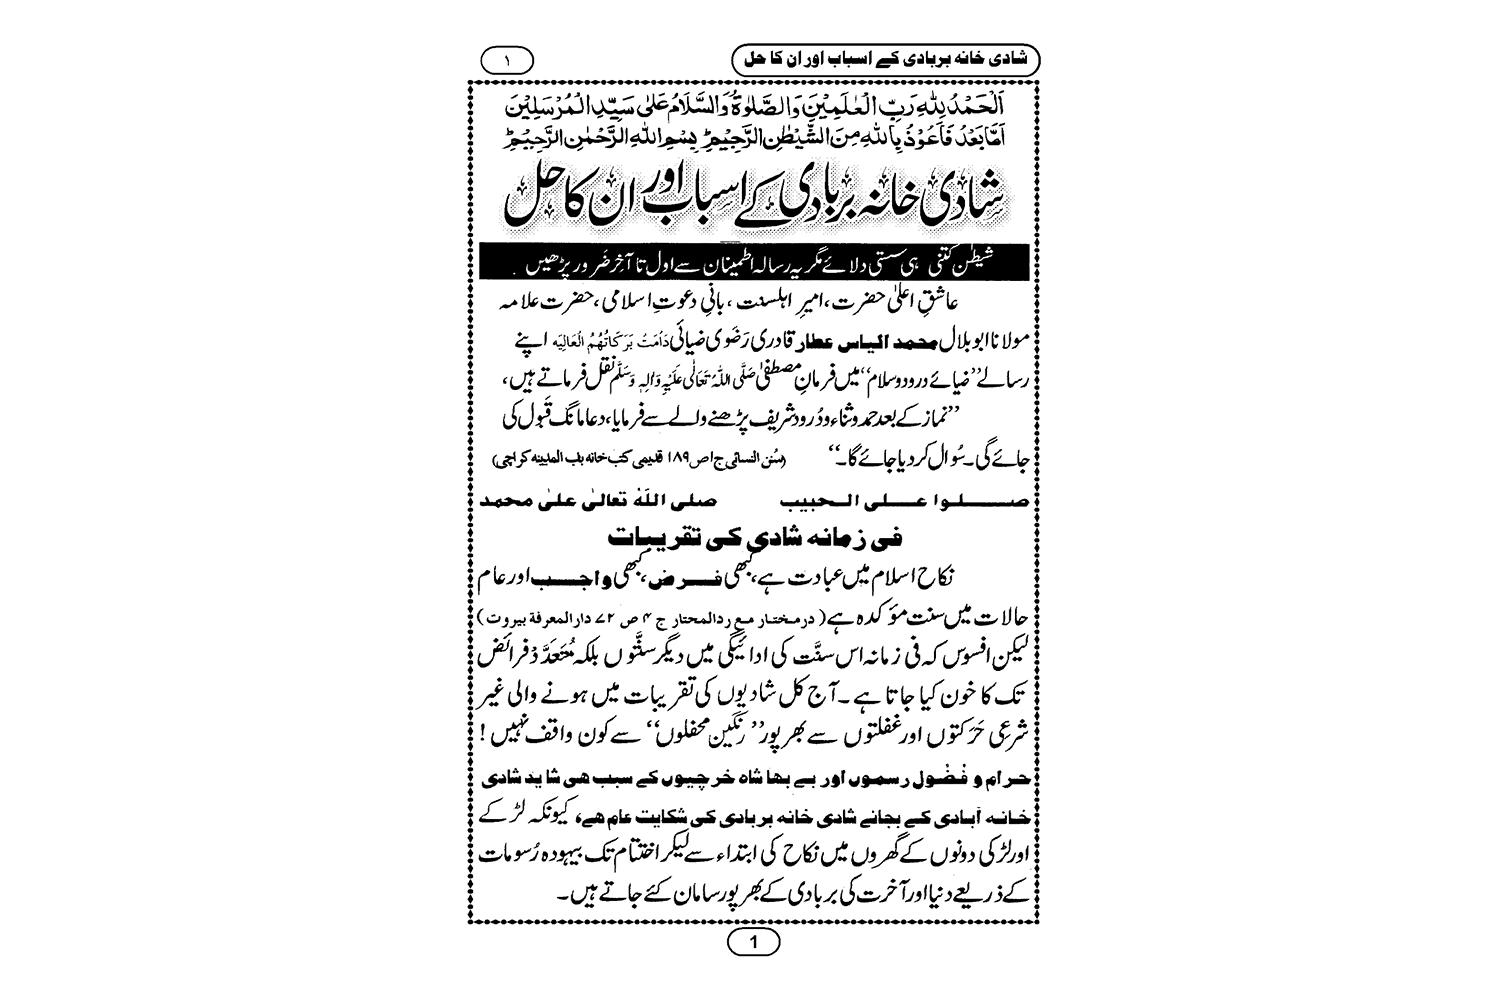 شادی خانہ بربادی کے اسباب اور ان کا حل
۱
اَلْحَمْدُ لِلّٰهِ رَبِّ الْعٰلَمِيْنَ وَالصَّلٰوةُ وَالسَّلَامُ عَلٰى سَيِّدِ الْمُرْسَلِيْنَ
اَمَّا بَعْدُ فَاَعُوْذُ بِاللّٰهِ مِنَ الشَّيْطٰنِ الرَّجِيْمِ ؕ بِسْمِ اللّٰهِ الرَّحْمٰنِ الرَّحِيْمِ ؕ
شادی خانہ بربادی کے اسباب اور ان کا حل
شیطٰن کتنی ہی سستی دلائے مگر یہ رسالہ اطمینان سے اول تا آخر ضَرور پڑھیں .
عاشقِ اعلیٰ حضرت ، امیرِ اہلسنت ، بانیِ دعوتِ اسلامی ، حضرت علامہ
مولانا ابو بلال محمد الیاس عطار قادری رَضَوی ضیائی دَامَتْ بَرَكَاتُهُمُ الْعَالِيَه اپنے
رسالے ’’ضیائے درود وسلام‘‘ میں فرمانِ مصطفٰی صَلَّی اللّٰهُ تَعَالٰی عَلَيْهِ وَاٰلِهٖ وَسَلَّم نقل فرماتے ہیں،
’’نماز کے بعد حمد و ثناء و دُرود شریف پڑھنے والے سے فرمایا، دعا مانگ قَبول کی
جائے گی۔ سُوال کر دیا جائے گا۔‘‘ (سُنن النسائی ج۱ ص ۱۸۹ قدیمی کتب خانہ باب المدینہ کراچی)
صلوا علی الحبیب صلی اللہ تعالیٰ علیٰ محمد
فی زمانہ شادی کی تقریبات
نکاح اسلام میں عبادت ہے، کبھی فرض ، کبھی واجب اور عام
حالات میں سنت مؤکدہ ہے (درمختار مع ردالمحتار ج ۴ ص ۷۲ دارالمعرفة بیروت)
لیکن افسوس کہ فی زمانہ اس سنَّت کی ادائیگی میں دیگر سنّتوں بلکہ مُتعدَّد فرائض
تک کا خون کیا جاتا ہے ۔ آج کل شادیوں کی تقریبات میں ہونے والی غیر
شرعی حَرَکتوں اور غفلتوں سے بھرپور ’’رنگین محفلوں‘‘ سے کون واقف نہیں !
حرام و فُضُول رسموں اور بے بھا شاہ خرچیوں کے سبب ھی شاید شادی
خانہ آبادی کے بجائے شادی خانہ بربادی کی شکایت عام ھے، کیونکہ لڑکے
اور لڑکی دونوں کے گھروں میں نکاح کی ابتداء سے لیکر اختتام تک بیہودہ رُسومات
کے ذریعے دنیا اور آخرت کی بربادی کے بھرپور سامان کئے جاتے ہیں۔
1